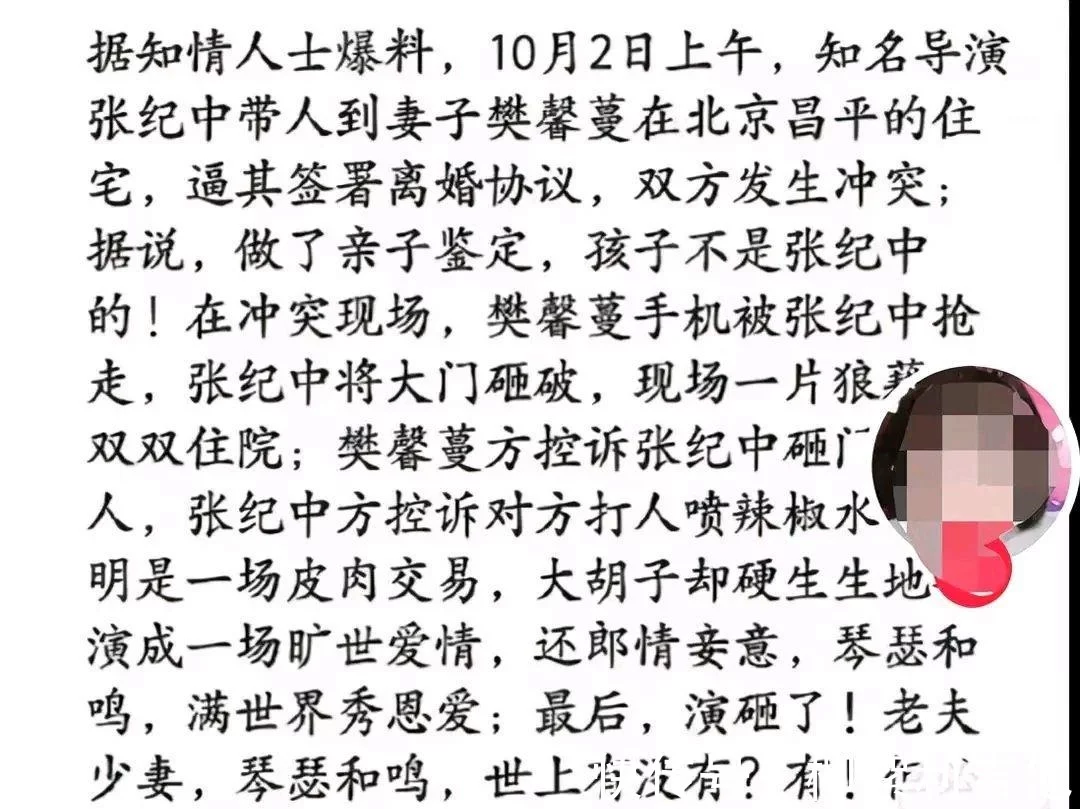 据知情人士爆料，10月2日上午，知名导演
张纪中带人到妻子樊馨蔓在北京昌平的住
宅，逼其签署离婚协议，双方发生冲突；
据说，做了亲子鉴定，孩子不是张纪中
的！在冲突现场，樊馨蔓手机被张纪中抢
走，张纪中将大门砸破，现场一片狼藉
双双住院；樊馨蔓方控诉张纪中砸门
人，张纪中方控诉对方打人喷辣椒水
明是一场皮肉交易，大胡子却硬生生地
演成一场旷世爱情，还郎情妾意，琴瑟和
鸣，满世界秀恩爱；最后，演砸了！老夫
少妻，琴瑟和鸣，世上有没有？有！